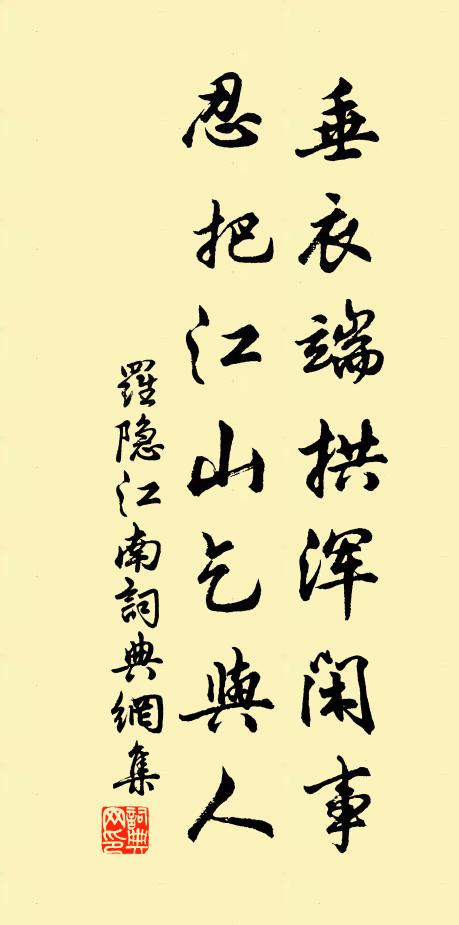 垂衣端拱浑闲事
忍把江山乞與人
羅隐江南詞典網集
詞典网印